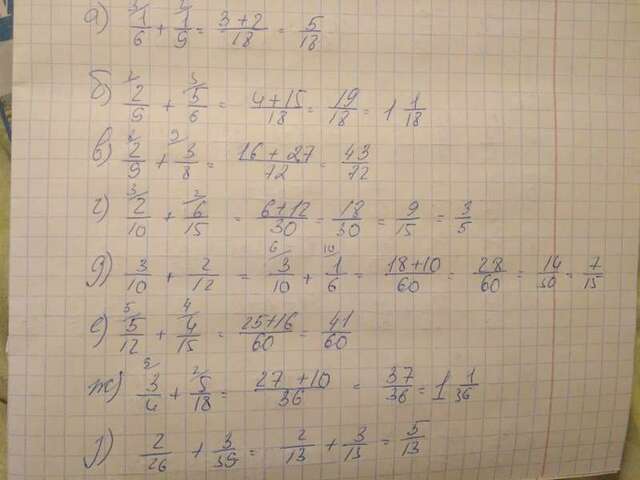 а) ³⁾1/6 + ²⁾1/9 = 3+2/18 = 5/18
б) ²⁾2/9 + ³⁾5/6 = 4+15/18 = 19/18 = 1 1/18
в) ⁸⁾2/9 + ⁹⁾3/8 = 16+27/72 = 43/72
г) ³⁾2/10 + ²⁾6/15 = 6+12/30 = 18/30 = 9/15 = 3/5
д) 3/10 + 2/12 = ⁶⁾3/10 + ¹⁰⁾1/6 = 18+10/60 = 28/60 = 14/30 = 7/15
е) ⁵⁾5/12 + ⁴⁾4/15 = 25+16/60 = 41/60
ж) ⁹⁾3/4 + ²⁾5/18 = 27+10/36 = 37/36 = 1 1/36
з) 2/26 + 3/39 = 2/13 + 3/13 = 5/13